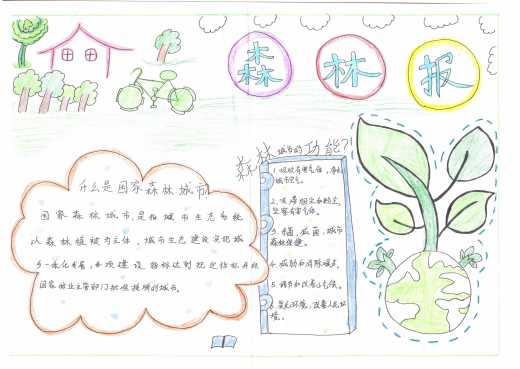 森林报
什么是国家森林城市
国家森林城市,是指城市生态系统
以森林植被为主体,城市生态建设实现城
乡一体化发展,各项建设指标达到规定指标并经
国家林业主管部门批准授牌的城市。
森林城市的功能?!
1.吸收有害气体,净化
城市空气。
2.吸滞烟尘和粉尘
3.杀菌,抑菌,城市
森林保健。
4.减弱和消除噪声。
5.调节和改善小气候。
6.美化环境,改善人居环
境。